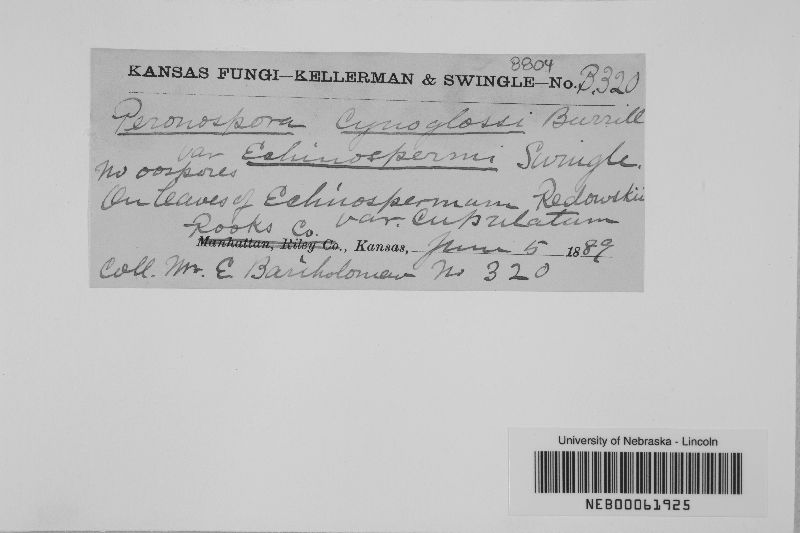 8804
KANSAS FUNGI—KELLERMAN & SWINGLE—No. B.320
Peronospora Cynoglossi Burrill
var Echinospermi Swingle.
no oospores
On leaves of Echinospermum Redowskii
var. cupulatum
Rooks Co.
Manhattan, Riley Co., Kansas, June 5 1889
Coll. Mr. E Bartholomew No 320
University of Nebraska - Lincoln
NEB00061925